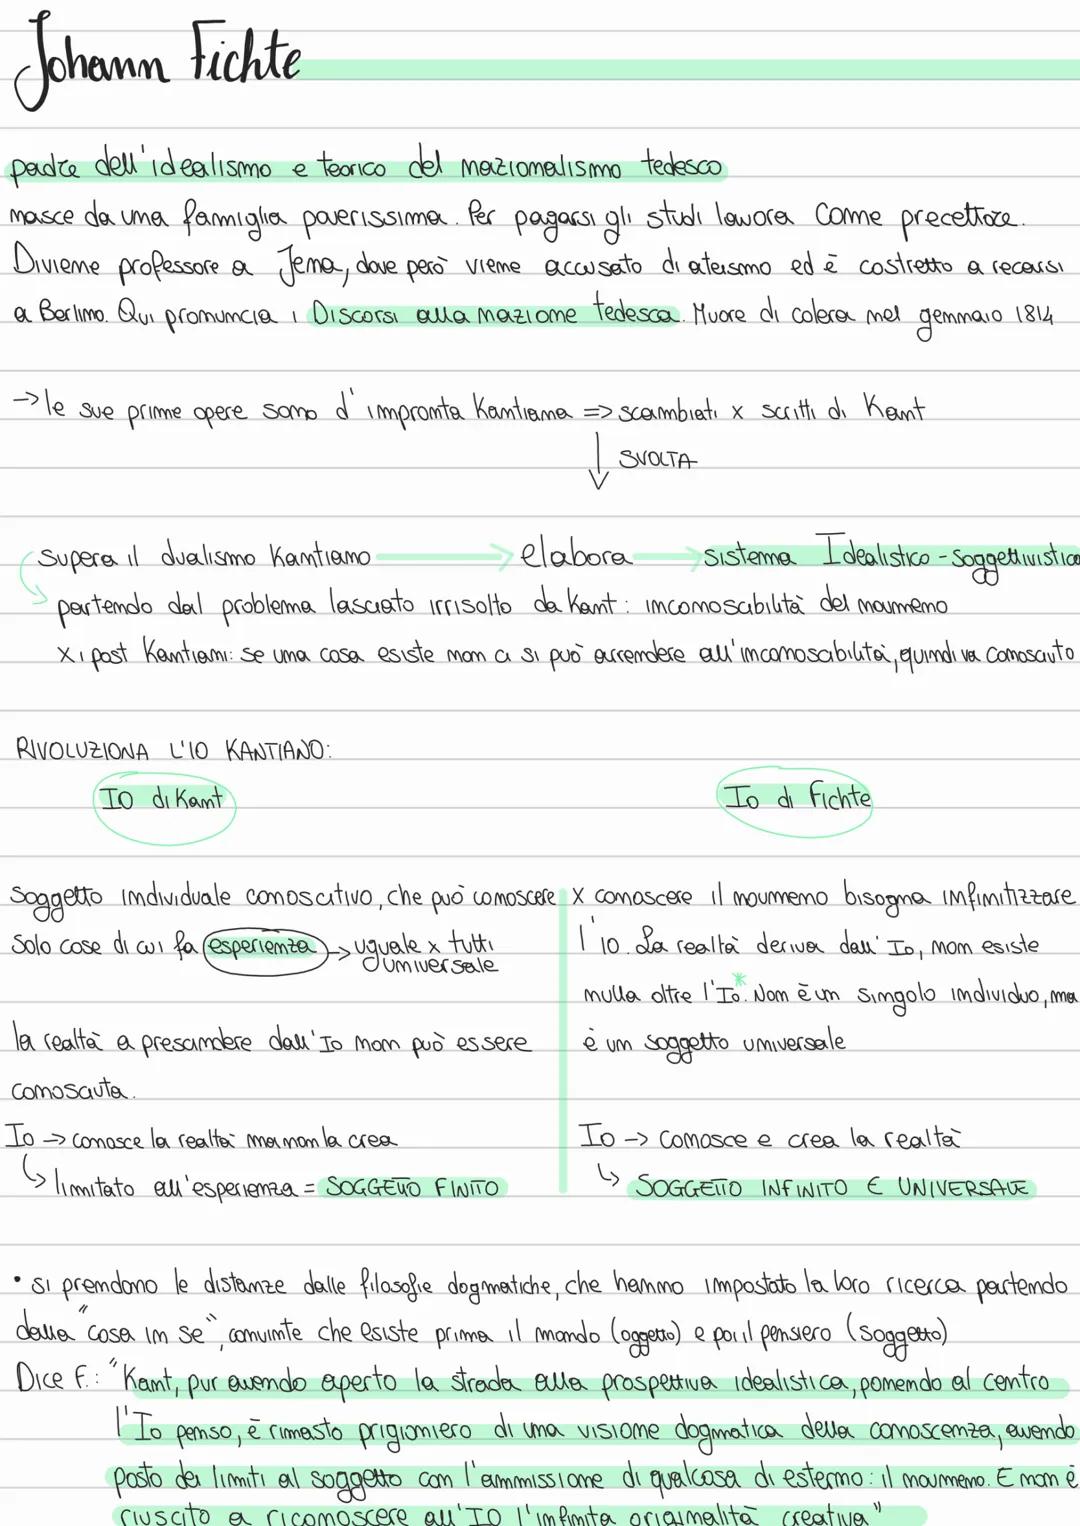 Johann Fichte
padre dell'idealismo e teorico del nazionalismo tedesco
nasce da una famiglia poverissima. Per pagarsi gli studi lavora come precettore.
Diviene professore a Jena, dove però viene accusato di ateismo ed è costretto a recarsi
a Berlino. Qui pronuncia i Discorsi alla nazione tedesca. Muore di colera nel gennaio 1814
→ le sue prime opere sono d'impronta Kantiana => scambiati x scritti di Kant
↓ SVOLTA
Supera il dualismo Kantiano → elabora → sistema Idealistico - Soggettivistico
partendo dal problema lasciato irrisolto da Kant: inconoscibilità del noumeno
x i post Kantiani: se una cosa esiste non ci si può arrendere all'inconoscibilità, quindi va conosciuto
RIVOLUZIONA L'IO KANTIANO:
IO di Kant
Io di Fichte
Soggetto individuale conoscitivo, che può conoscere
solo cose di cui fa esperienza → uguale x tutti
universale
la realtà a prescindere dall'Io non può essere
conosciuta.
Io → conosce la realtà ma non la crea
↳ limitato all'esperienza = SOGGETTO FINITO
x conoscere il noumeno bisogna infinitizzare
l'io. La realtà deriva dall'Io, non esiste
nulla oltre l'Io.* Non è un singolo individuo, ma
è un soggetto universale
Io → conosce e crea la realtà
↳ SOGGETTO INFINITO E UNIVERSALE
• si prendono le distanze dalle filosofie dogmatiche, che hanno impostato la loro ricerca partendo
dalla "cosa in sé", convinte che esiste prima il mondo (oggetto) e poi il pensiero (soggetto)
Dice F.: "Kant, pur avendo aperto la strada alla prospettiva idealistica, ponendo al centro
l'Io penso, è rimasto prigioniero di una visione dogmatica della conoscenza, avendo
posto dei limiti al soggetto con l'ammissione di qualcosa di esterno: il noumeno. E non è
riuscito a riconoscere all'IO l'infinita originalità creativa"